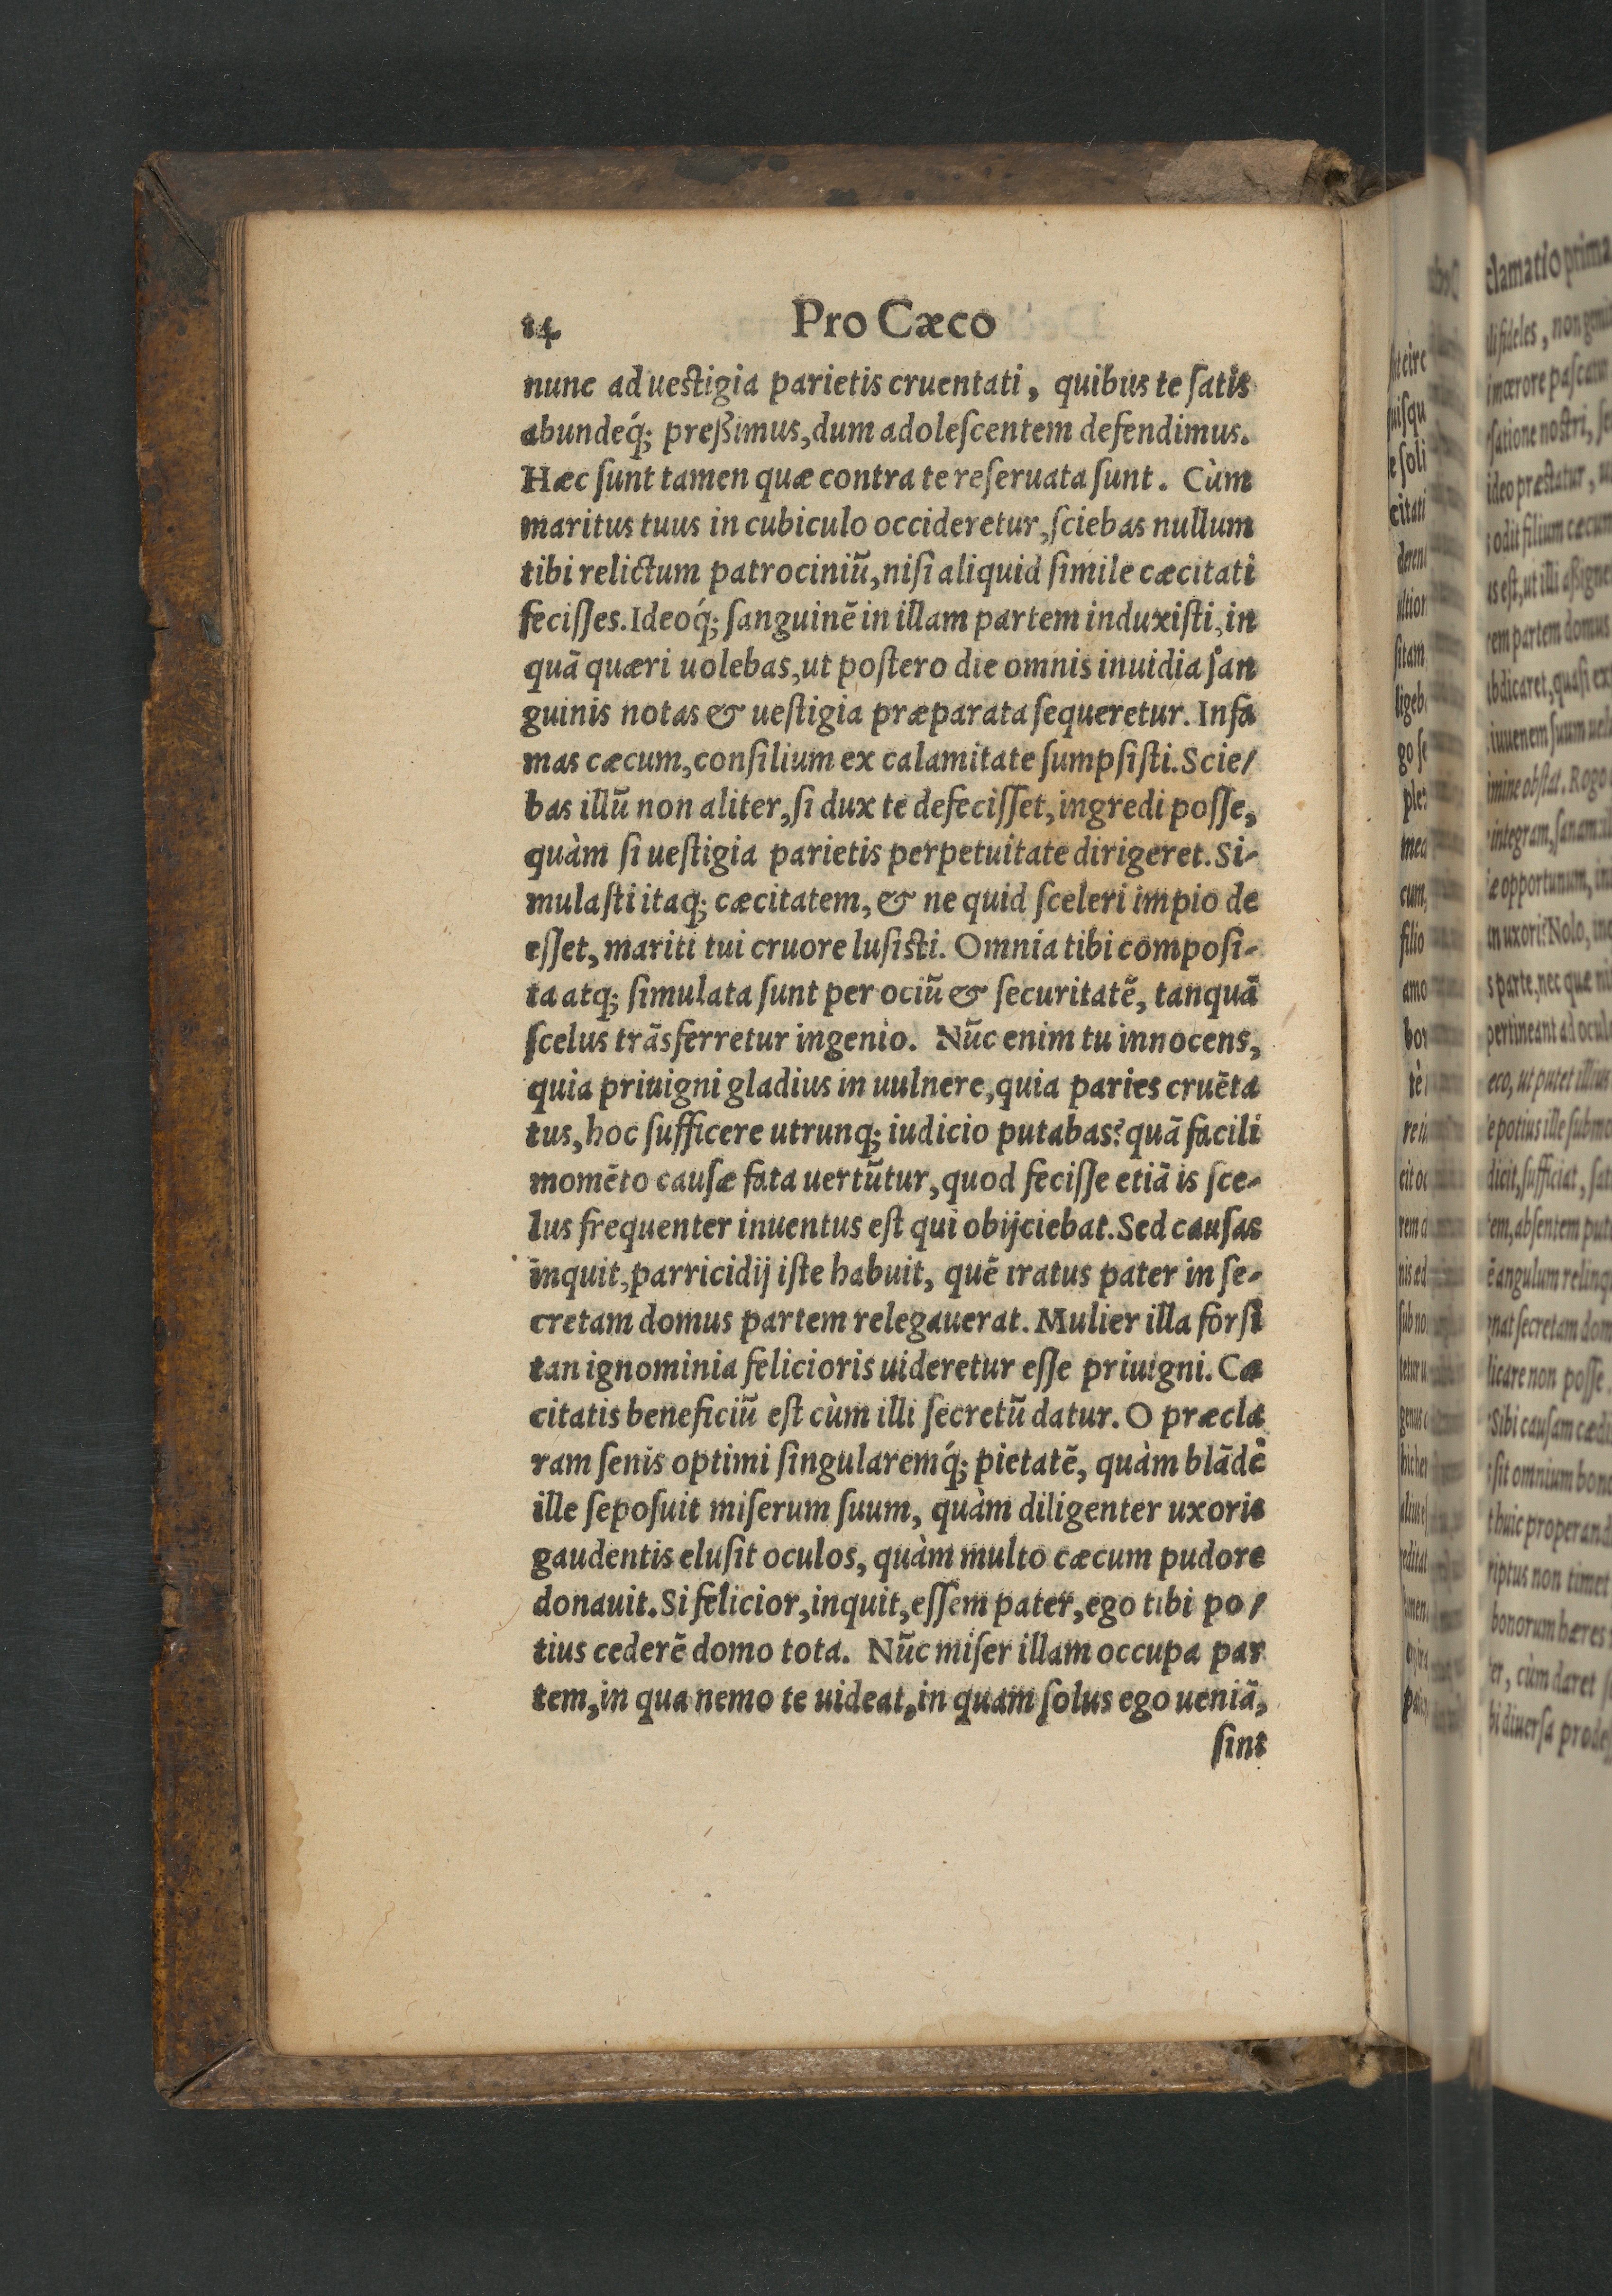 84
Pro Cæco
nunc ad ueſtigia parietis cruentati, quibus te ſatis
abundeq́; preßimus, dum adoleſcentem defendimus.
Hæc ſunt tamen quæ contra te reſeruata ſunt. Cùm
maritus tuus in cubiculo occideretur, ſciebas nullum
tibi relictum patrociniũ, niſi aliquid ſimile cæcitati
feciſſes. Ideoq́; ſanguinẽ in illam partem induxiſti, in
quã quæri uolebas, ut poſtero die omnis inuidia ſan
guinis notas & ueſtigia præparata ſequeretur. Infa
mas cæcum, conſilium ex calamitate ſumpſiſti. Scie/
bas illũ non aliter, ſi dux te defeciſſet, ingredi poſſe,
quàm ſi ueſtigia parietis perpetuitate dirigeret. Si-
mulaſti itaq; cæcitatem, & ne quid ſceleri impio de
eſſet, mariti tui cruore luſiſti. Omnia tibi compoſi-
ta atq; ſimulata ſunt per ociũ & ſecuritatẽ, tanquã
ſcelus trãsferretur ingenio. Nũc enim tu innocens,
quia priuigni gladius in uulnere, quia paries cruẽta
tus, hoc ſufficere utrunq; iudicio putabas? quã facili
momẽto cauſæ fata uertũtur, quod feciſſe etiã is ſce-
lus frequenter inuentus eſt qui obijciebat. Sed cauſas
inquit, parricidij iſte habuit, quẽ iratus pater in ſe-
cretam domus partem relegauerat. Mulier illa forſi
tan ignominia felicioris uideretur eſſe priuigni. Cæ
citatis beneficiũ eſt cùm illi ſecretũ datur. O præcla
ram ſenis optimi ſingularemq́; pietatẽ, quàm blãdè
ille ſepoſuit miſerum ſuum, quàm diligenter uxoris
gaudentis eluſit oculos, quàm multo cæcum pudore
donauit. Si felicior, inquit, eſſem pater, ego tibi po/
tius cederẽ domo tota. Nũc miſer illam occupa par
tem, in qua nemo te uideat, in quam ſolus ego ueniã,
ſint